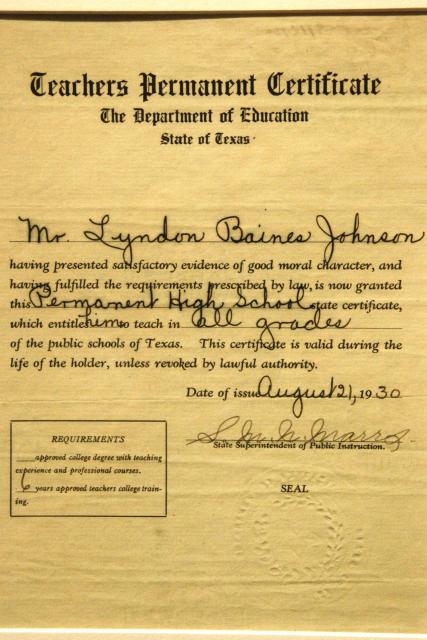 Teachers Permanent Certificate
The Department of Education
State of Texas
Mr. Lyndon Baines Johnson
having presented satisfactory evidence of good moral character, and
having fulfilled the requirements prescribed by law, is now granted
this Permanent High School state certificate,
which entitles him to teach in all grades
of the public schools of Texas. This certificate is valid during the
life of the holder, unless revoked by lawful authority.
Date of issue August 21, 1930
S. M. N. Marrs
State Superintendent of Public Instruction.
REQUIREMENTS
approved college degree with teaching
experience and professional courses.
6 years approved teachers college train-
ing.
SEAL